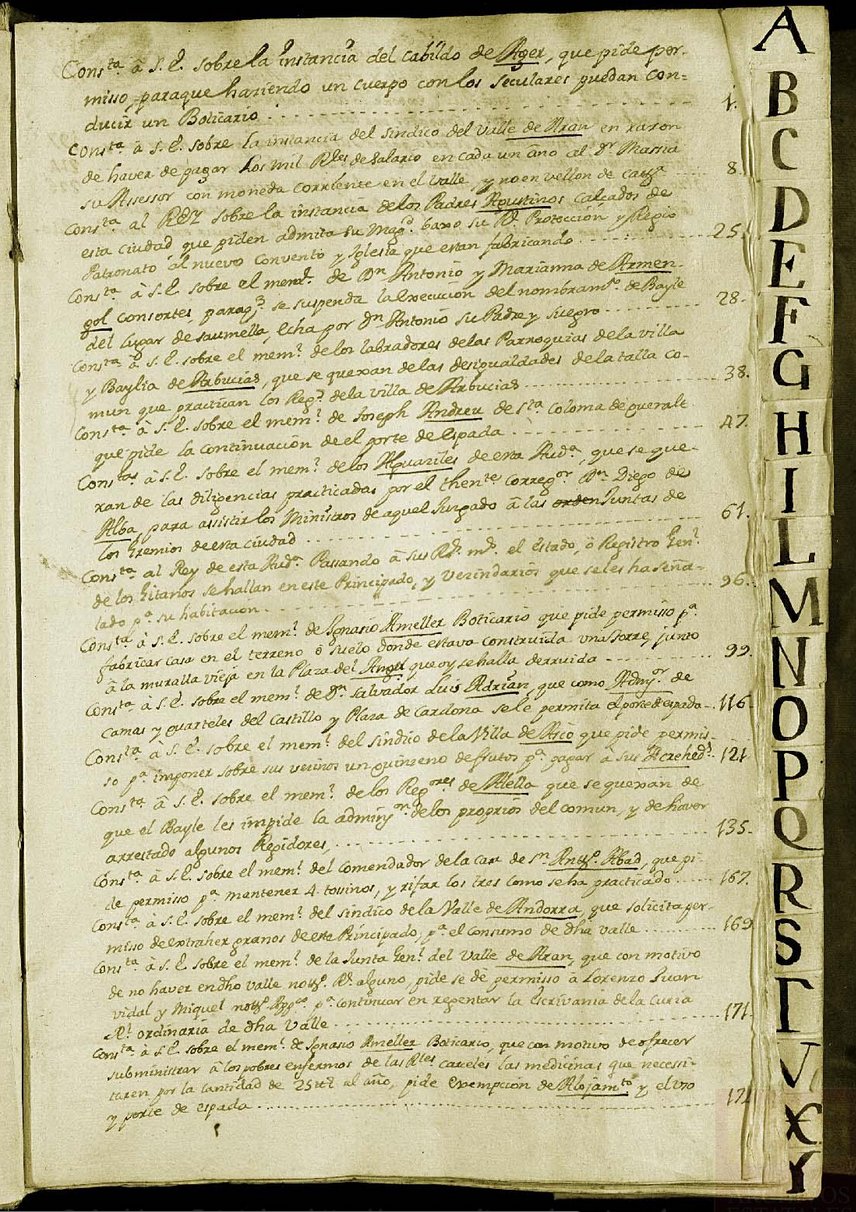 Cons.ta à S.E. sobre la instancia del cabildo de Ager, que pide per-
misso, paraque haziendo un cuerpo con los seculares puedan con=
ducir un Boticario . . . 1.
Cons.ta à S.E. sobre la instancia del sindico del valle de Aran en razon
de haver de pagar los mil R.les de salario en cada un año al D.r Massia
su Assessor con moneda corriente en el valle, y no en vellon de carga . . . 8.
Cons.ta al REY sobre la instancia de los Padres Agustinos calzados de
esta ciudad que piden admita su Mag.d baxo su R.l Protoccion y Regio
Patronato al nuevo convento y Iglesia que estan fabricando . . . 25.
Cons.ta à S.E. sobre el mem.l de D.n Antonio y Marianna de Armen-
gol consortes paraq.e se suspenda la execucion del nombram.to de Bayle
del lugar de saumella, echa por D.n Antonio su Padre y suegro . . . 28.
Cons.ta à S.E. sobre el mem.l de los labradores de las Parroquias de la villa
y Baylia de Arbucias, que se quexan de las desigualdades de la talla co-
mun que practican los Reg.s de la villa de Arbucias . . . 38.
Cons.ta à S.E. sobre el mem.l de Joseph Andreu de S.ta Coloma de queralt
que pide la continuacion de el porte de espada . . . 47.
Cons.ta à S.E. sobre el mem.l de los Alguaziles de esta Aud.a, que se que-
xan de las diligencias practicadas por el theniente Correg.or D.n Diego de
Alba, para assistir los Ministros de aquel Jusgado à las orden Juntas de
los Gremios de esta ciudad . . . 61.
Cons.ta al Rey de esta Aud.a Passando à sus R.s m.s el estado, ò Registro Gen.l
de los Gitanos se hallan en este Principado, y vezindarios que seles ha seña-
lado p.a su habitacion . . . 96.
Cons.ta à S.E. sobre el mem.l de Ignasio Ameller Boticario que pide permisso p.a
fabricar casa en el terreno ò suelo donde estava construida una torre, junto
à la muralla vieja en la Plaza del Angel que oy se halla derruida . . . 99.
Cons.ta à S.E. sobre el mem.l de D.n Salvador Luis Adrian, que como Adm.or de
camas y quarteles del Castillo y Plaza de Cardona se le permita el porte de espada . . . 116.
Cons.ta à S.E. sobre el mem.l del sindico de la Villa de Asco que pide permis-
so p.a imponer sobre sus vecinos un quinzeno de frutos p.a pagar à sus Acrehed.s 121
Cons.ta à S.E. sobre el mem.l de los Reg.res de Alella que se quexan de
que el Bayle les impide la adminis.on de los proprios del comun, y de haver
arrestado algunos Regidores, . . . 135.
Cons.ta à S.E. sobre el mem.l del Comendador de la casa de S.n Ant.o Abad, que pi-
de permiso p.a mantener 4. tossinos, y rifar los tres como se ha practicado . . . 167.
Cons.ta à S.E. sobre el mem.l del sindico de la Valle de Andorra, que solicita per-
misso de extraher granos de este Principado, p.a el consumo de dha valle . . . 169
Cons.ta à S.E. sobre el mem.l de la Junta Gen.l del Valle de Aran, que con motivo
de no haver en dho valle not.o R.l alguno, pide se dè permisso à Lorenzo Juan
vidal y Miquel not.s App.cos p.a continuar en regentar la Escrivania de la Curia
R.l ordinaria de dha Valle . . . 171.
Cons.ta à S.E. sobre el mem.l de Ignasio Ameller Boticario, que con motivo de ofrecer
subministrar à los pobres enfermos de las R.les carceles las medicinas que necessi-
taren por la cantidad de 25 al año, pide exempcion de Alojam.to y el uso
y porte de espada . . .
A
B
C
D
E
F
G
H
I
L
M
N
O
P
Q
R
S
T
V
X
Y